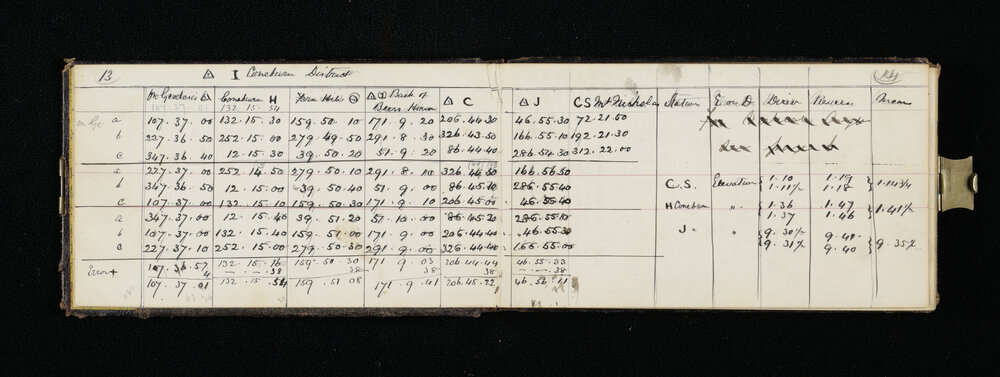 13 △ I Coneburn District 14
Coneburn H △ Back of △ C △ J C S Mt Nicholas Station E or D Direir Reverse Mean
107. 37. 01 132. 15. 54 Beers House
a 107. 37. 00 132. 15. 30 159. 50. 10 171. 9. 20 206. 44. 30 46. 55. 30 72. 21. 50
b 227. 36. 50 252. 15. 00 279. 49. 50 291. 8. 30 326. 43. 50 166. 55. 10 192. 21. 30
c 347. 36. 40 12. 15. 30 39. 50. 20 51. 9. 20 86. 44. 40 286. 54. 30 312. 22. 00
a 227. 37. 00 252. 14. 50 279. 50. 10 291. 8. 10 326. 44. 50 166. 56. 50
b 347. 36. 50 12. 15. 00 39. 50. 40 51. 9. 00 86. 45. 10 286. 55. 40 C.S. Elevation 1. 10 1. 19 1. 14 3/4
1. 11 1/2 1. 18
c 107. 37. 00 132. 15. 10 159. 50. 30 171. 9. 10 206. 45. 00 46. 55. 40 H Coneburn " 1. 36 1. 47 1. 41 1/2
a 347. 37. 00 12. 15. 40 39. 51. 20 51. 10. 00 86. 45. 20 286. 55. 10 1. 37 1. 46
b 107. 37. 00 132. 15. 40 159. 51. 00 171. 9. 00 206. 44. 40 46. 55. 30 J " 9. 30 1/2 9. 40
c 227. 37. 10 252. 15. 00 279. 50. 30 291. 9. 00 326. 44. 40 166. 55. 00 9. 31 1/2 9. 40 9. 35 1/2
Error + 107. 36. 57 132. 15. 16 159. 50. 30 171. 9. 03 206. 44. 44 46. 55. 33
4 38 38 38 38 38
107. 37. 01 132. 15. 54 159. 51 08 171. 9. 41 206. 45. 22 46. 56. 11